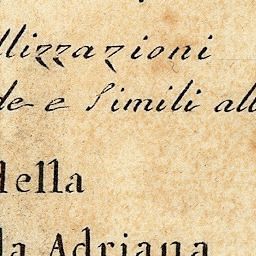 llizzazioni
de e Simili all
della
la Adriana